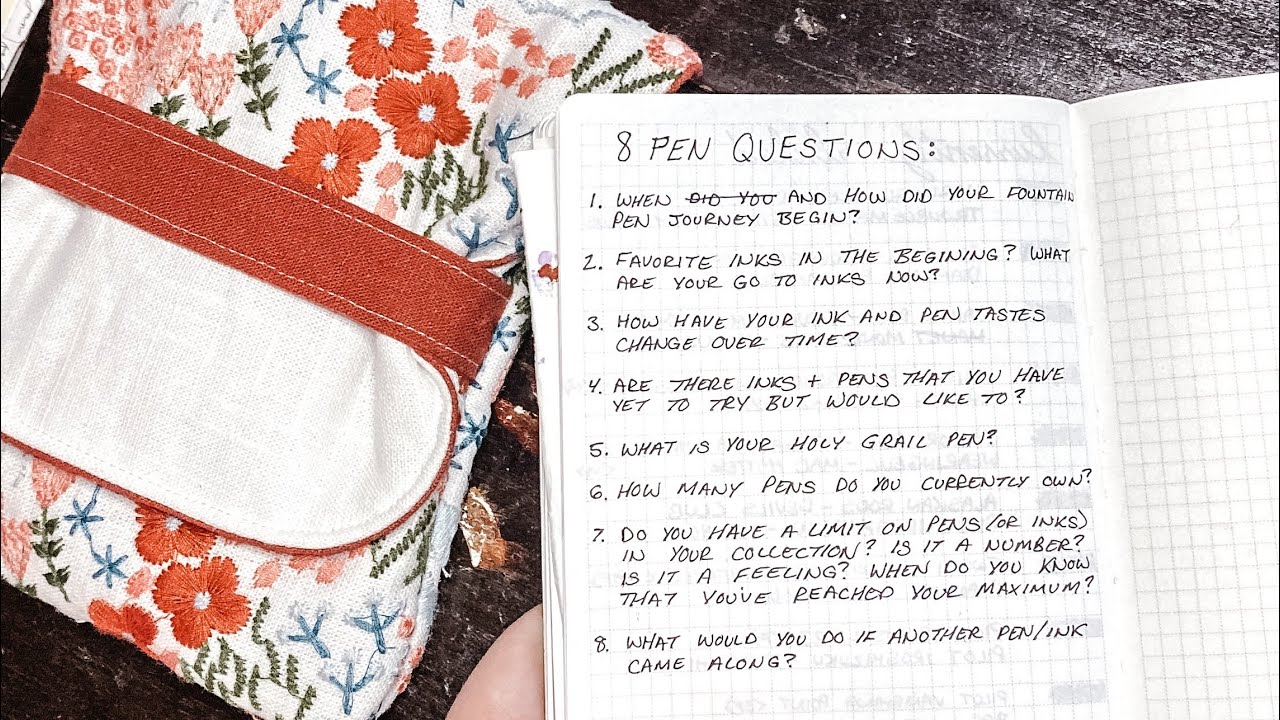 8 PEN QUESTIONS:
1. WHEN DID YOU AND HOW DID YOUR FOUNTAIN
PEN JOURNEY BEGIN?
2. FAVORITE INKS IN THE BEGINING? WHAT
ARE YOUR GO TO INKS NOW?
3. HOW HAVE YOUR INK AND PEN TASTES
CHANGE OVER TIME?
4. ARE THERE INKS + PENS THAT YOU HAVE
YET TO TRY BUT WOULD LIKE TO?
5. WHAT IS YOUR HOLY GRAIL PEN?
6. HOW MANY PENS DO YOU CURRENTLY OWN?
7. DO YOU HAVE A LIMIT ON PENS (OR INKS)
IN YOUR COLLECTION? IS IT A NUMBER?
IS IT A FEELING? WHEN DO YOU KNOW
THAT YOU'VE REACHED YOUR MAXIMUM?
8. WHAT WOULD YOU DO IF ANOTHER PEN/INK
CAME ALONG?